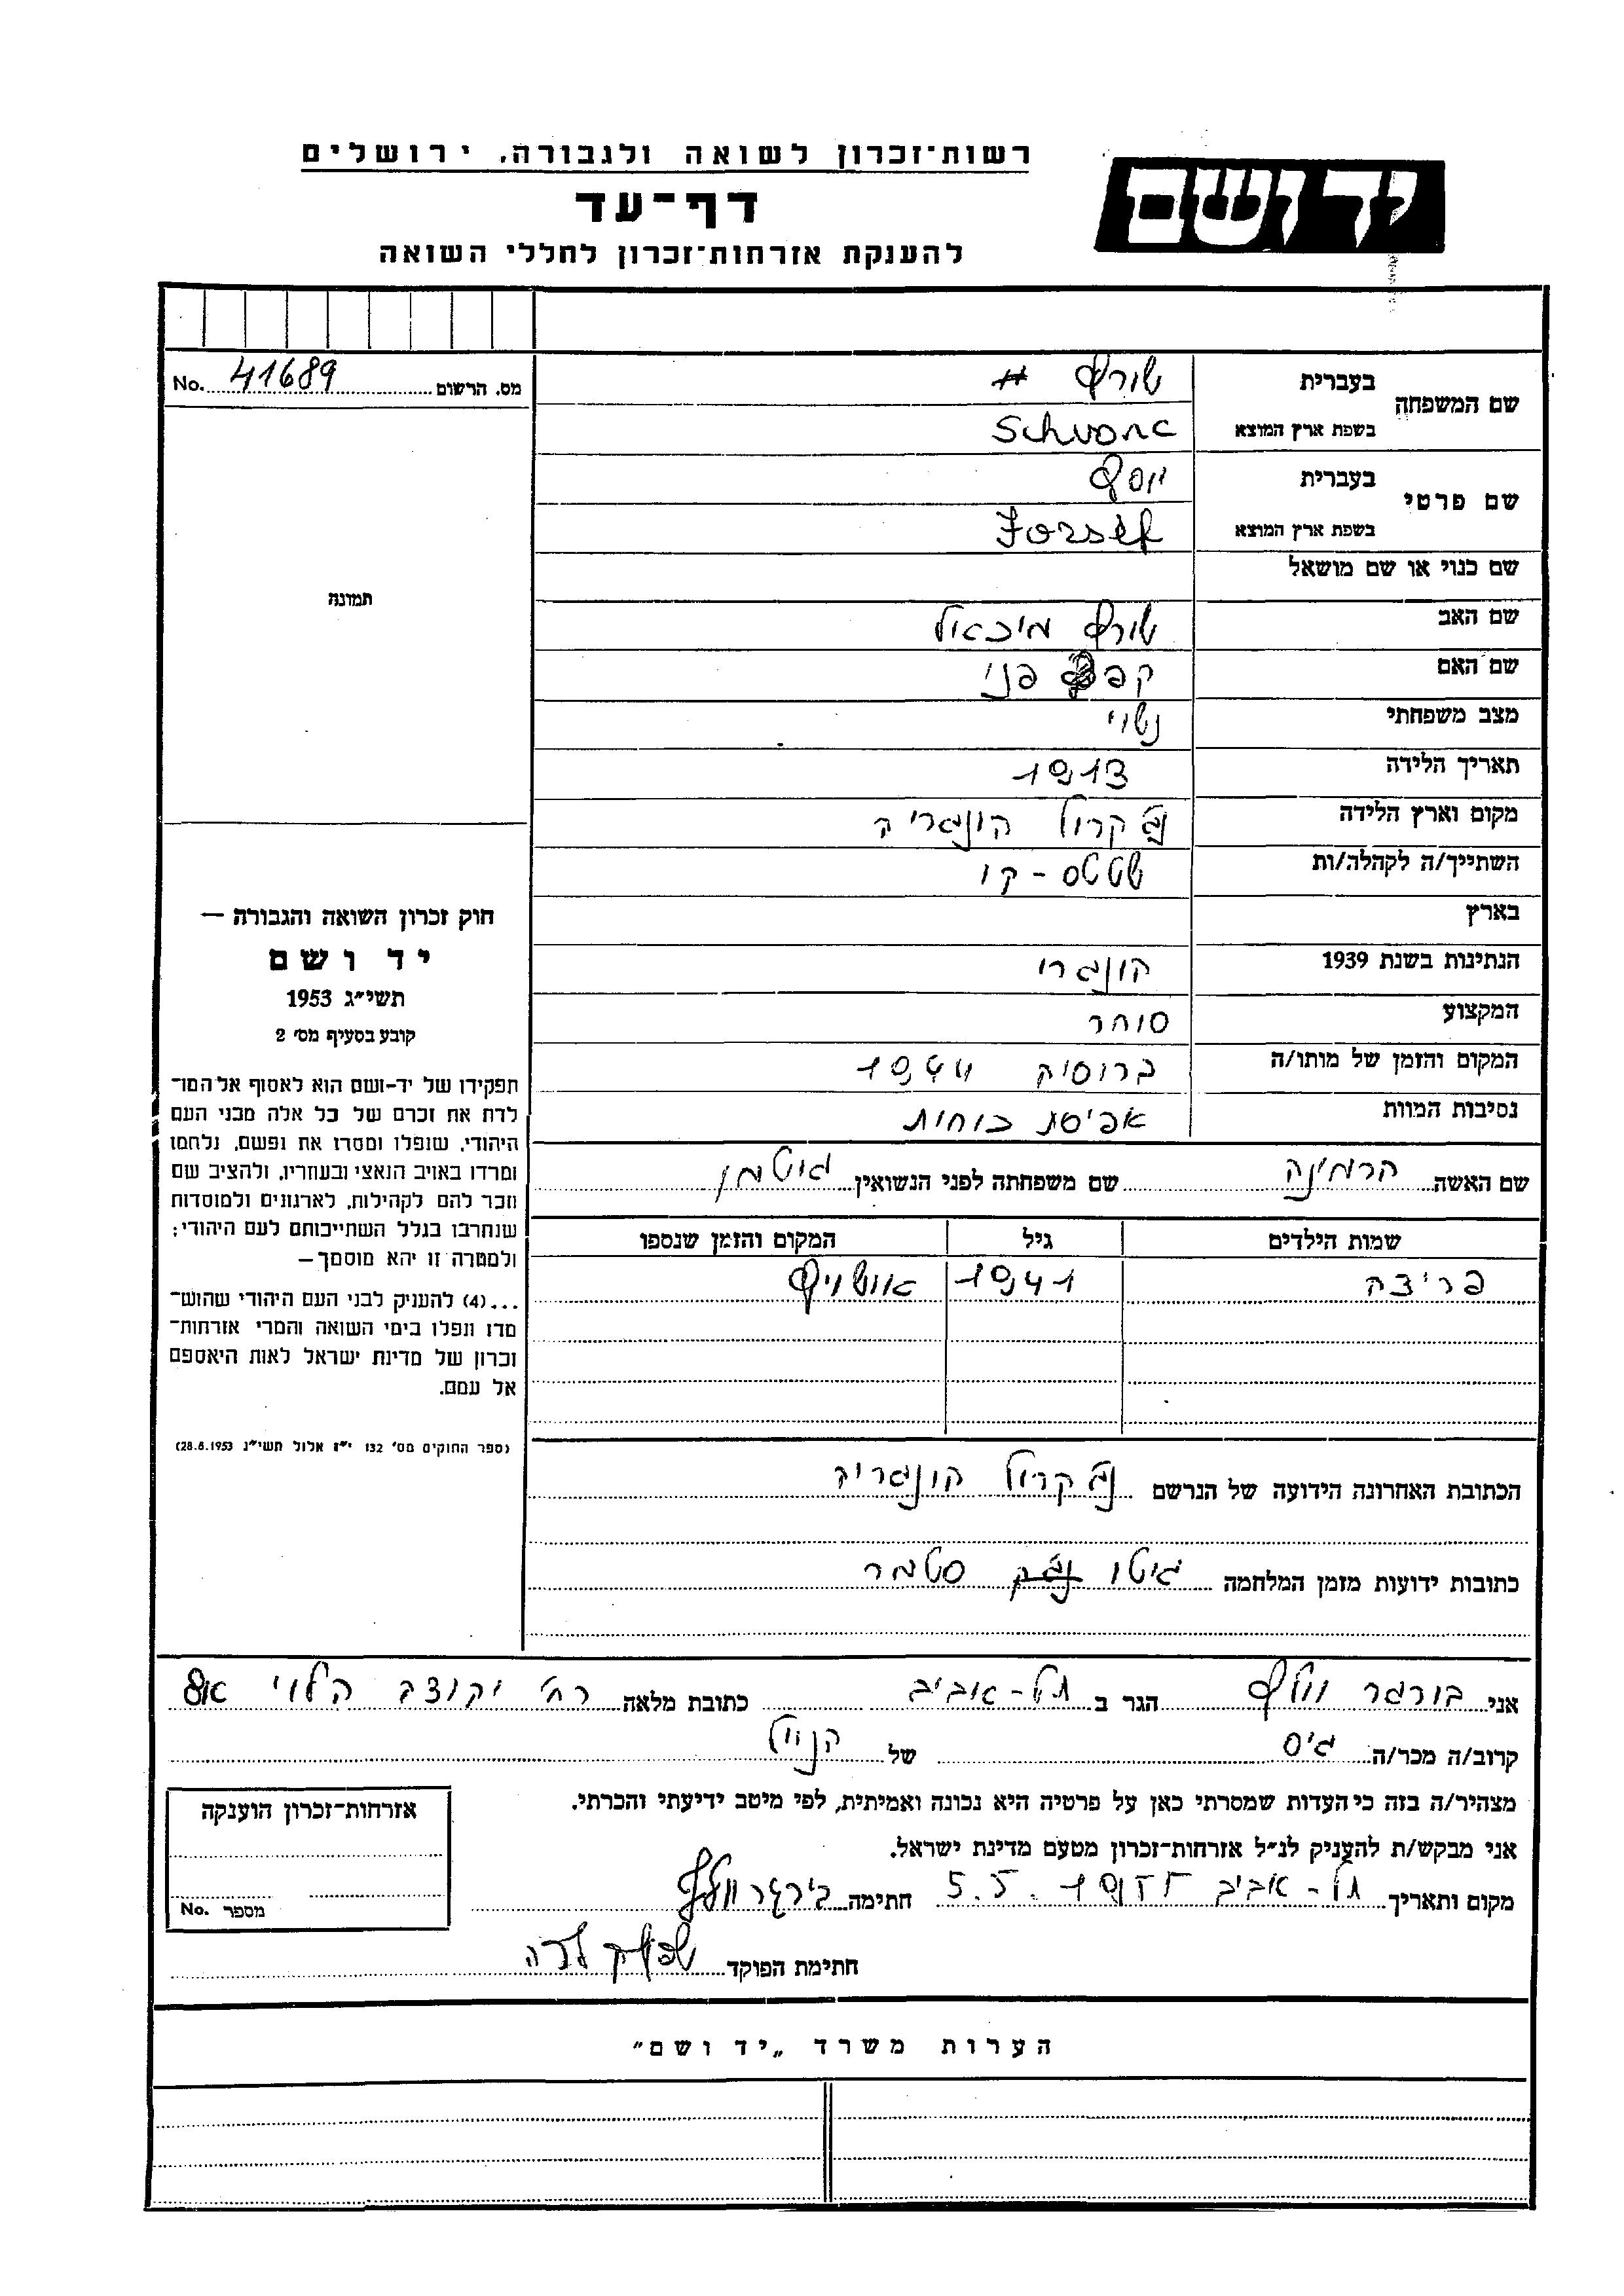 רשות־זכרון לשואה ולגבורה, ירושלים
יד ושם
דף־עד
להענקת אזרחות־זכרון לחללי השואה
מס. הרשום 41689 No.
שם המשפחה בעברית שורץ
בשפת ארץ המוצא Schvarc
שם פרטי בעברית יוסף
בשפת ארץ המוצא Jozsef
שם כנוי או שם מושאל
שם האב שורץ מיכאל
שם האם פני
מצב משפחתי נשוי
תאריך הלידה 1913
מקום וארץ הלידה נג' קרול הונגריה
השתייך/ה לקהלה/ות סטטס-קו
בארץ
הנתינות בשנת 1939 הונגרי
המקצוע סוחר
המקום והזמן של מותו/ה ברוסיה 1944
נסיבות המוות אפיסת כוחות
שם האשה הרמינה שם משפחתה לפני הנשואין גוטמן
שמות הילדים גיל המקום והזמן שנספו
פריצה 1941 אושויץ
הכתובת האחרונה הידועה של הנרשם נג' קרול הונגריה
כתובות ידועות מזמן המלחמה גיטו סטמר
תמונה
חוק זכרון השואה והגבורה —
יד ושם
תשי״ג 1953
קובע בסעיף מס׳ 2
תפקידו של יד-ושם הוא לאסוף אל המו־
לדת את זכרם של כל אלה מבני העם
היהודי, שנפלו ומסרו את נפשם, נלחמו
ומרדו באויב הנאצי ובעוזריו, ולהציב שם
וזכר להם לקהילות, לארגונים ולמוסדות
שנחרבו בגלל השתייכותם לעם היהודי;
ולמטרה זו יהא מוסמך—
...(4) להעניק לבני העם היהודי שהוש־
מדו ונפלו בימי השואה והמרי אזרחות־
זכרון של מדינת ישראל לאות היאספם
אל עמם.
(ספר החוקים מס׳ 132 י״ז אלול תשי״ג 28.8.1953)
אני בורגר וולף הגר ב תל-אביב כתובת מלאה רח' יעקב הלוי
קרוב/ה מכר/ה גיס של הנ״ל
מצהיר/ה בזה כי העדות שמסרתי כאן על פרטיה היא נכונה ואמיתית, לפי מיטב ידיעתי והכרתי.
אני מבקש/ת להעניק לנ״ל אזרחות־זכרון מטעם מדינת ישראל.
מקום ותאריך תל-אביב 5.5.1955 חתימה בורגר וולף
חתימת הפוקד
אזרחות־זכרון הוענקה
מספר No.
הערות משרד „יד ושם״